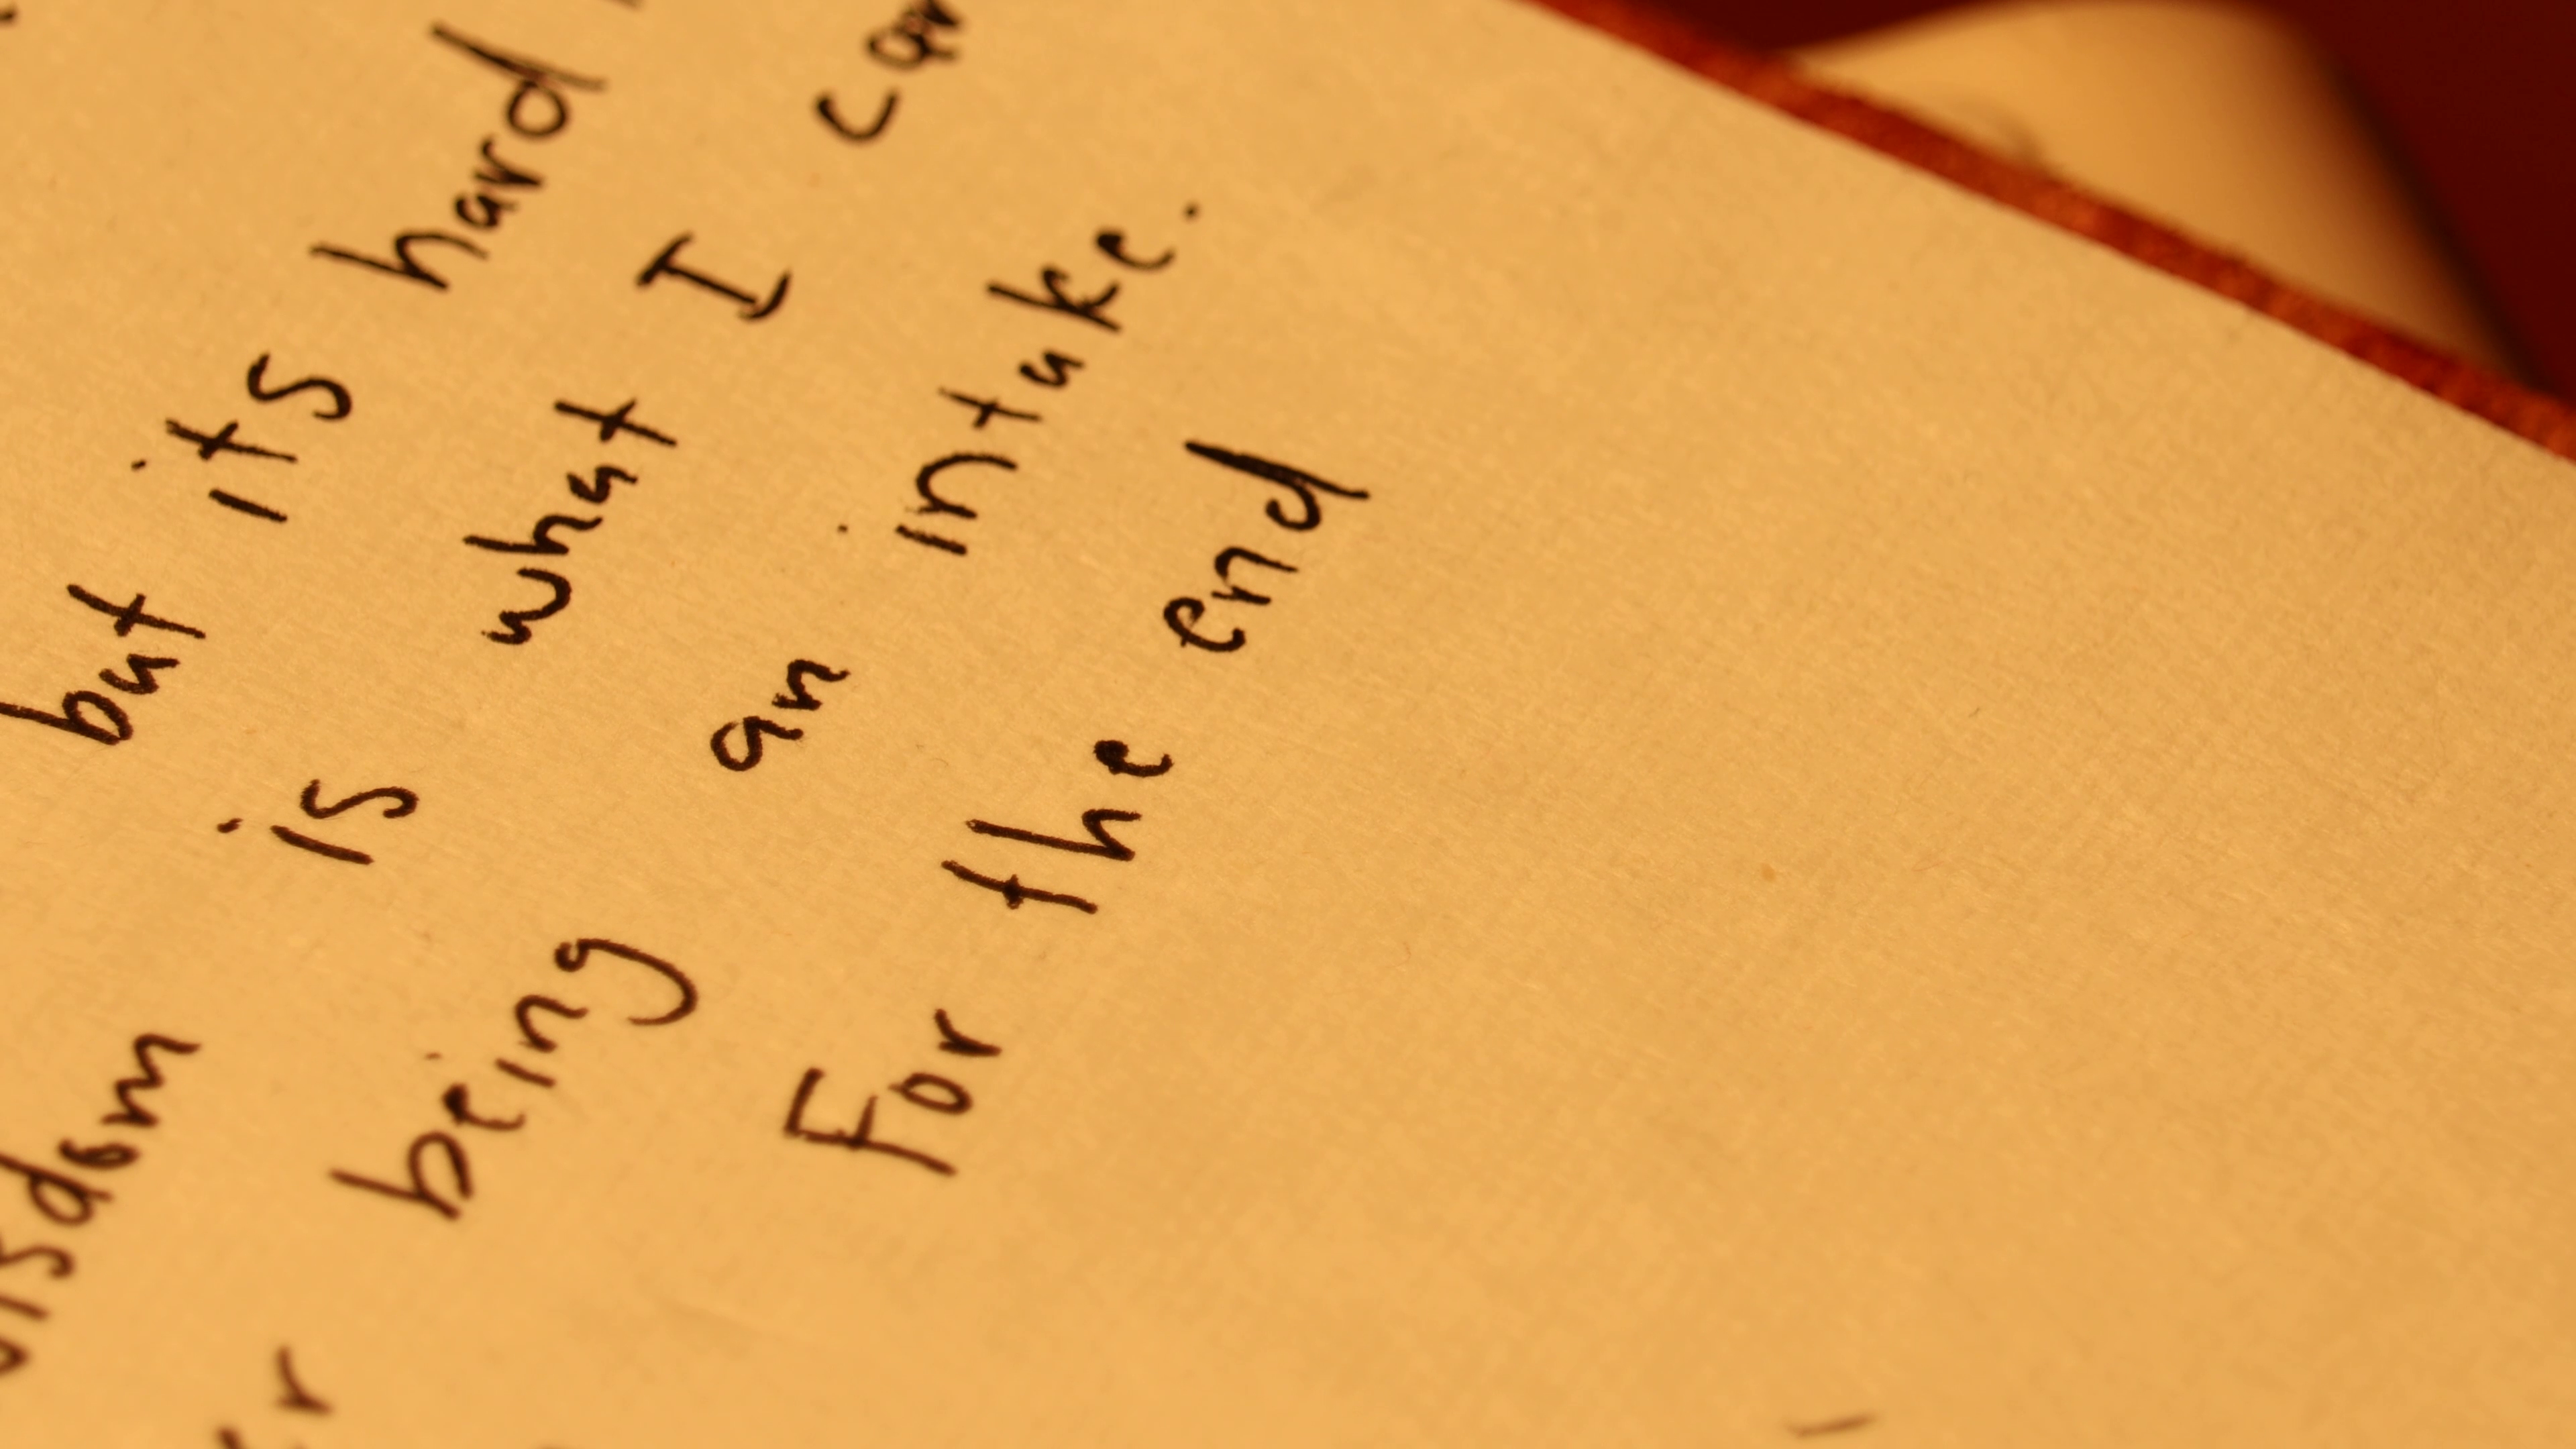 but its hard
is what I
being an intake.
For the end